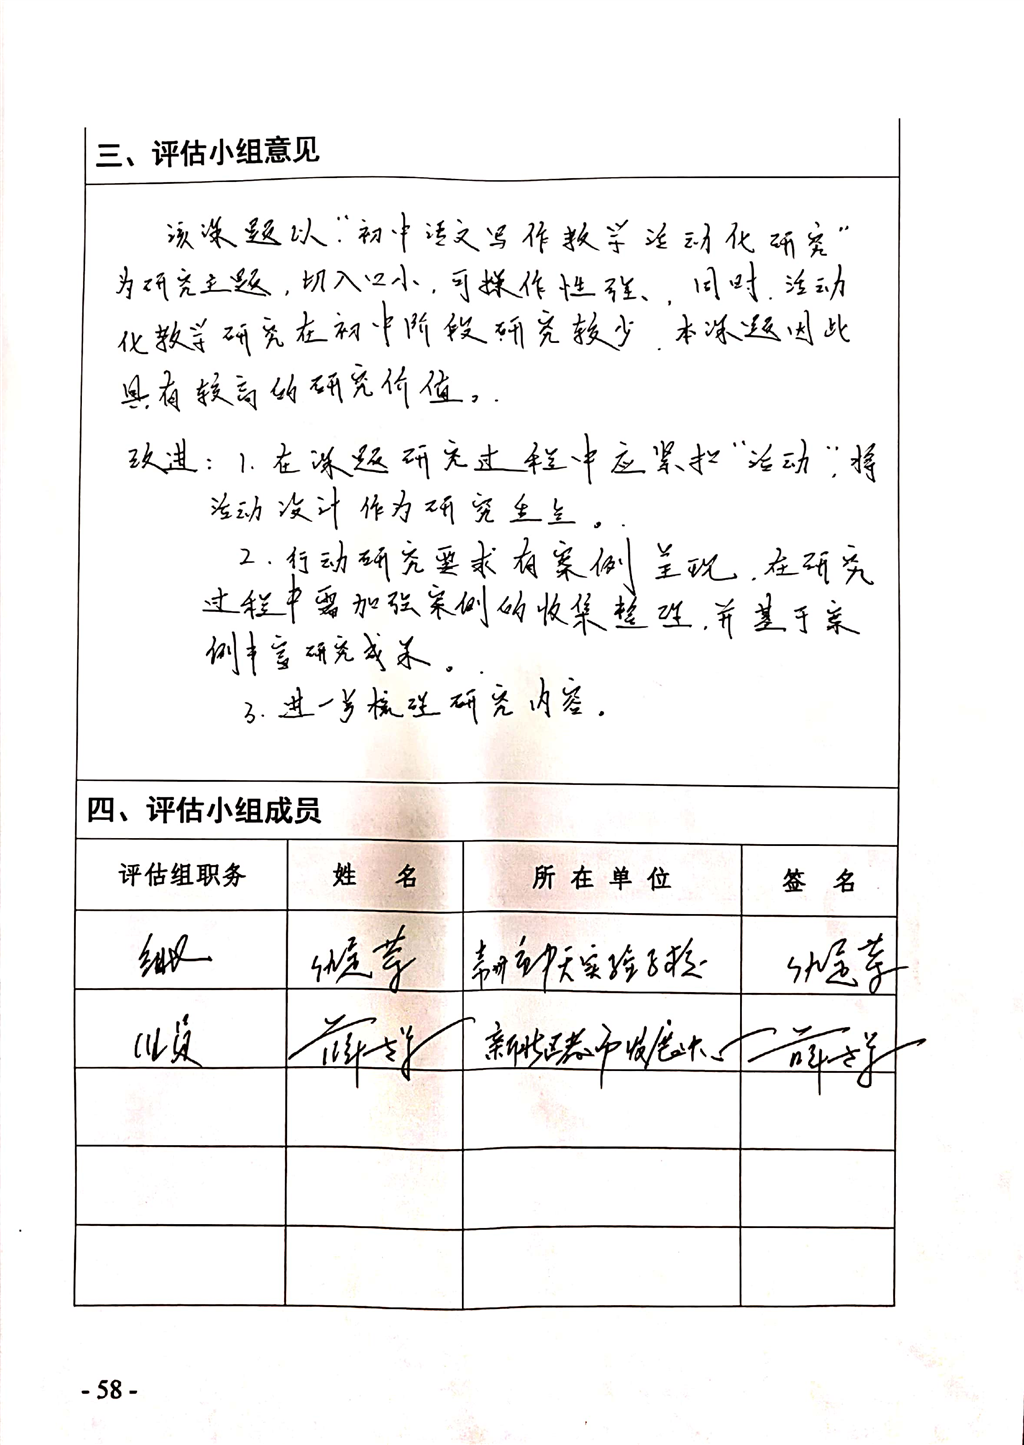 三、评估小组意见
该课题以“初中语文写作教学活动化研究”
为研究主题，切入口小，可操作性强、，同时，活动
化教学研究在初中阶段研究较少，本课题因此
具有较高的研究价值。
改进：1. 在课题研究过程中应紧扣“活动”，将
活动设计作为研究重点。
2. 行动研究要求有案例呈现，在研究
过程中需加强案例的收集整理，并基于案
例丰富研究成果。
3. 进一步梳理研究内容。
四、评估小组成员
评估组职务 姓 名 所在单位 签 名
组长 常州市中天实验学校
组员 薛 新北区教师发展中心 薛
- 58 -